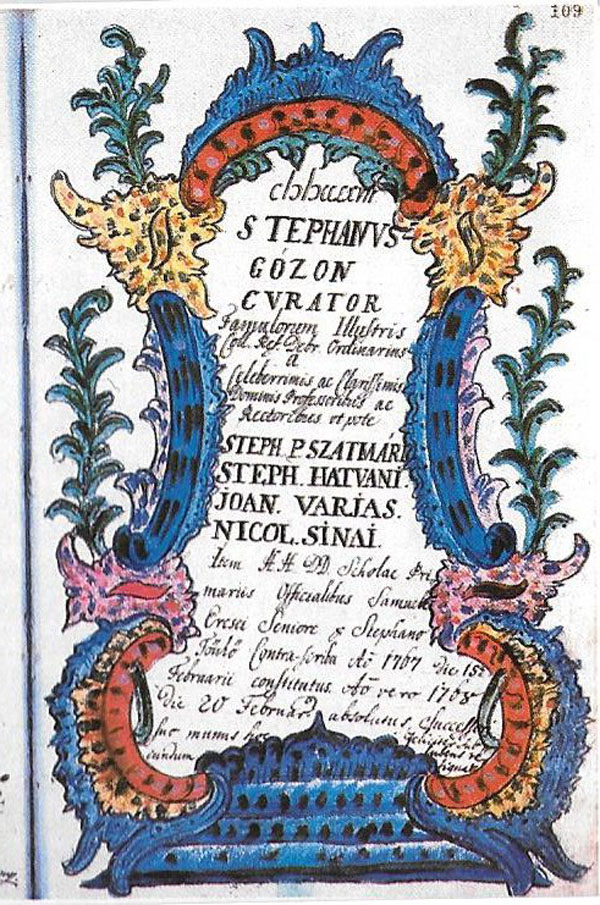 109
STEPHANVS
GÓZON
CVRATOR
Famulorum Illustris
Coll. Ref. Debr. Ordinarius
a
Celeberrimis ac Clarissimis
Dominis Professoribus ac
Rectoribus ut pote
STEPH. P. SZATMÁRI
STEPH. HATVANI
JOAN. VARJAS.
NICOL. SINAI.
Item HH DD Scholae Pri
mariis Officialibus Samuele
Ercsei Seniore & Stephano
Contra-scriba Aõ 1767 die 15
Februarii constitutus Aõ vero 1768
Die 20 Februarii absolutus, Successori
suo munus hoc